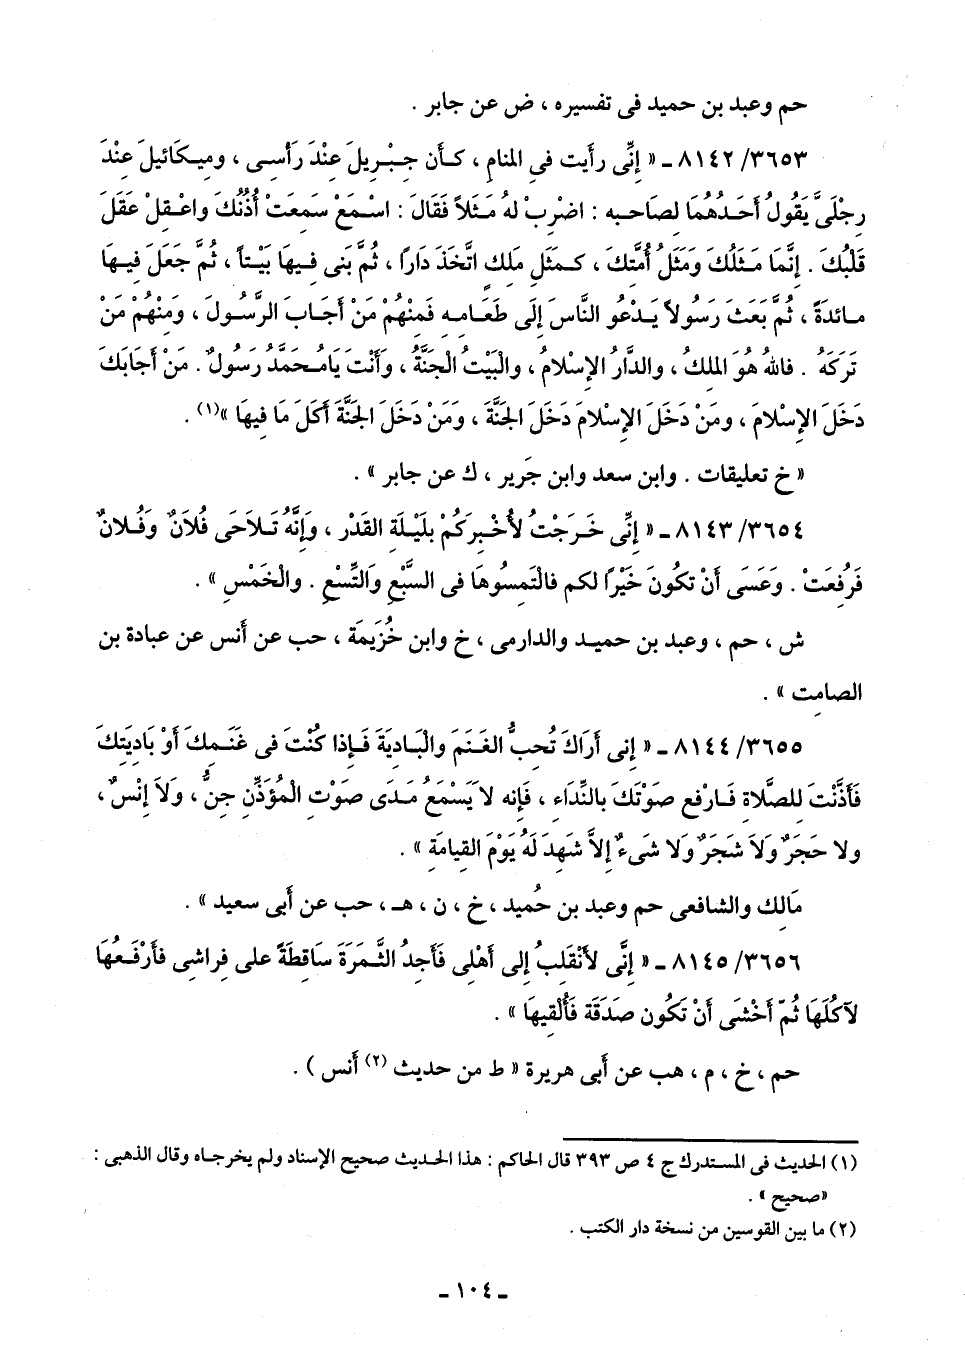 حم وعبد بن حميد فى تفسيره ، ض عن جابر .
٨١٤٢/٣٦٥٣ ـ « إنِّى رأيت فى المنام ، كـأن جبْرِيلَ عِنْدَ رَأْسِى ، وميكَائيلَ عِنْدَ
رِجْلَىَّ يَقُولُ أَحَدُهُمَا لصَاحبه : اضْرِبْ لهُ مَثَلاً فَقَالَ : اسْمَعْ سَمِعَتْ أُذُنُكَ واعْقِلْ عَقَلَ
قَلْبُكَ . إنَّمَا مَثَلُكَ وَمَثَلُ أُمَّتِكَ ، كَمَثَلِ مَلِكٍ اتَّخَذَ دَارًا ، ثُمَّ بَنَى فِيهَا بَيْتاً ، ثُمَّ جَعَلَ فِيهَا
مائدَةً ، ثُمَّ بَعَثَ رَسُولاً يَدْعُو النَّاسَ إلَى طَعَامِهِ فَمِنْهُمْ مَنْ أَجَابَ الرَّسُولَ ، وَمِنْهُمْ مَنْ
تَرَكَهُ . فاللهُ هُوَ الملكُ ، والدَّارُ الإسْلامُ ، والْبَيْتُ الْجَنَّةُ ، وَأَنْتَ يَامُحَمَّدُ رَسُولٌ . مَنْ أَجَابَكَ
دَخَلَ الإسْلامَ ، ومَنْ دَخَلَ الإسْلامَ دَخَلَ الجَنَّةَ ، وَمَنْ دَخَلَ الجَنَّةَ أَكَلَ مَا فِيهَا »(١) .
« خ تعليقات . وابن سعد وابن جَرير ، ك عن جابر » .
٨١٤٣/٣٦٥٤ ـ « إنِّى خَرَجْتُ لأُخْبِرَكُمْ بلَيْلَةِ القَدْرِ ، وَإنَّهُ تَلاَحَى فُلاَنٌ وَفُلانٌ
فَرُفِعَتْ . وَعَسَى أَنْ تكُونَ خَيْرًا لكم فالْتَمِسُوهَا فى السَّبْعِ وَالتِّسْعِ . والْخَمْسِ » .
ش ، حم ، وعبد بن حميد والدارمى ، خ وابن خُزَيمَة ، حب عن أنس عن عبادة بن
الصامت » .
٨١٤٤/٣٦٥٥ ـ « إنى أَرَاكَ تُحبُّ الغَنَمَ والْبَادِيَةَ فَإذا كُنْتَ فى غَنَمِكَ أوْ بَادِيَتِكَ
فَأَذَّنْتَ للصَّلاةِ فَارْفع صَوْتَكَ بالنِّدَاءِ ، فَإنه لاَ يَسْمَعُ مَدَى صَوْتِ الْمُؤَذِّنِ جِنٌّ ، وَلاَ إنْسٌ ،
ولا حَجَرٌ وَلاَ شَجَرٌ وَلا شىءٌ إلاَّ شَهِدَ لَهُ يَوْمَ القِيامَةِ » .
مَالك والشافعى حم وعبد بن حُميد ، خ ، ن ، هـ ، حب عن أبى سعيد » .
٨١٤٥/٣٦٥٦ ـ « إنَّى لأَنْقَلِبُ إلى أهْلِى فَأَجِدُ الثَّمَرَةَ سَاقِطَةً على فِراشِى فأَرْفَعُهَا
لآكُلَهَا ثُمّ أَخْشَى أَنْ تَكُون صَدَقَة فَأُلْقِيهَا » .
حم ، خ ، م ، هب عن أبى هريرة « ط من حديث (٢) أنس ) .
(١) الحديث فى المستدرك ج ٤ ص ٣٩٣ قال الحاكم : هذا الحديث صحيح الإسناد ولم يخرجاه وقال الذهبى :
«صحيح » .
(٢) ما بين القوسين من نسخة دار الكتب .
ـ ١٠٤ ـ